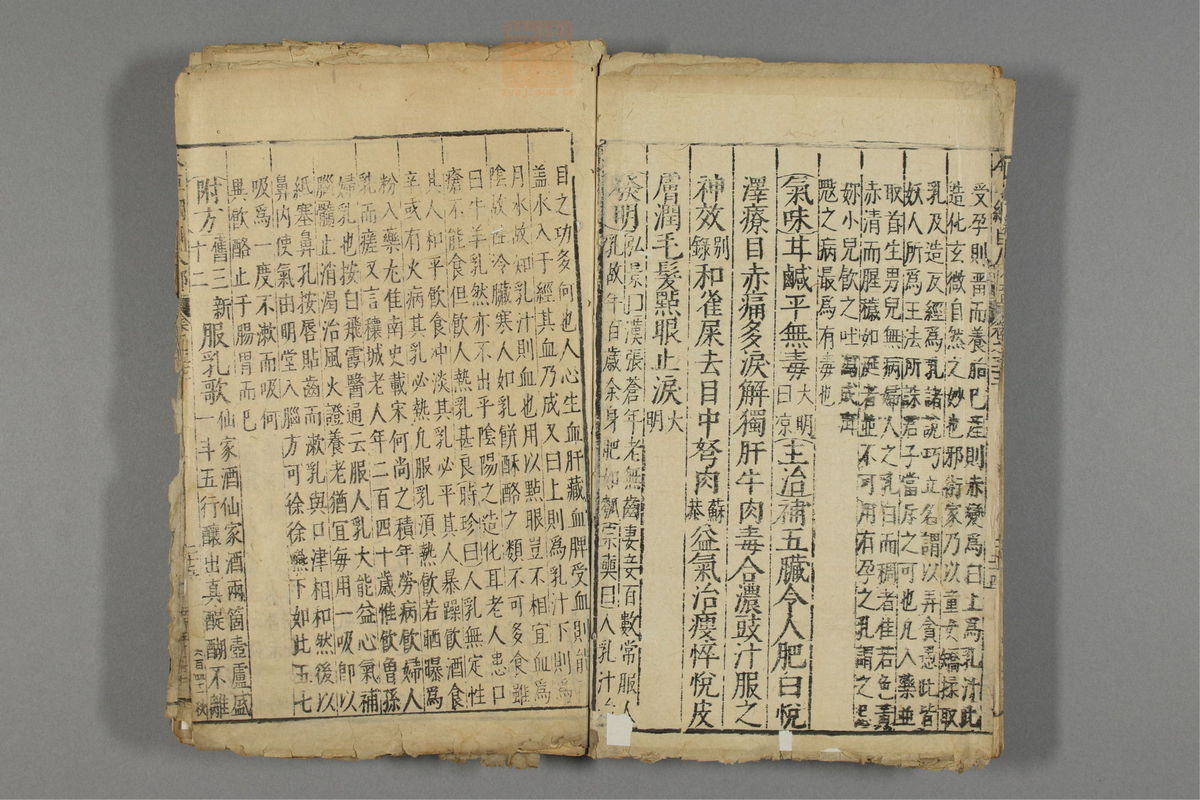 受孕則留而養胎已產則赤變為白上為乳汁此
造化玄微自然之妙也邪術家乃以童女矯揉取
乳及造反經為乳諸說巧立名謂以弄貪愚此皆
妖人所為王法所誅君子當斥之可也凡入藥並
取首生男兒無病婦人之乳白而稠者佳若色黃
赤清而腥穢如涎者並不可用有孕之乳謂之忌
妳小兒飲之吐瀉成疳
䰰之病最為有毒也
氣味甘鹹平無毒大明曰涼主治補五臟令人肥白悅
澤療目赤痛多淚解獨肝牛肉毒合濃豉汁服之
神效別錄和雀屎去目中努肉蘇恭益氣治瘦悴悅皮
膚潤毛髮點眼止淚大明
發明弘景曰漢張蒼年老無齒妻妾百數常服人
乳故年百歲余身肥如瓠宗奭曰人乳汁治
目之功多何也人心生血肝藏血脾受血則能
蓋水入于經其血乃成又曰上則為乳汁下則為
月水故知乳汁則血也用以點眼豈不相宜血為
陰故性冷臟寒人如乳餅酥酪之類不可多食雖
曰牛羊乳然亦不出乎陰陽之造化耳老人患口
瘡不能食但飲人熱乳甚良時珍曰人乳無定性
其人和平飲食沖淡其乳必平其人暴躁飲酒食
辛或有火病其乳必熱凡服乳須熱飲若晒曝為
粉入藥尤佳南史載宋何尚之積年勞病飲婦人
乳而瘥又言穰城老人年二百四十歲惟飲曾孫
婦乳也按白飛霞醫通云服人乳大能益心氣補
腦髓止消渴治風火證養老猶宜每用一吸即以
紙塞鼻孔按唇貼齒而漱乳與口津相和然後以
鼻內使氣由明堂入腦方可徐徐嚥下如此五七
吸為一度不漱而吸何
異飲酪止于腸胃而已
附方舊三新十二服乳歌仙家酒仙家酒兩箇壺盧盛
一斗五行釀出真醍醐不離